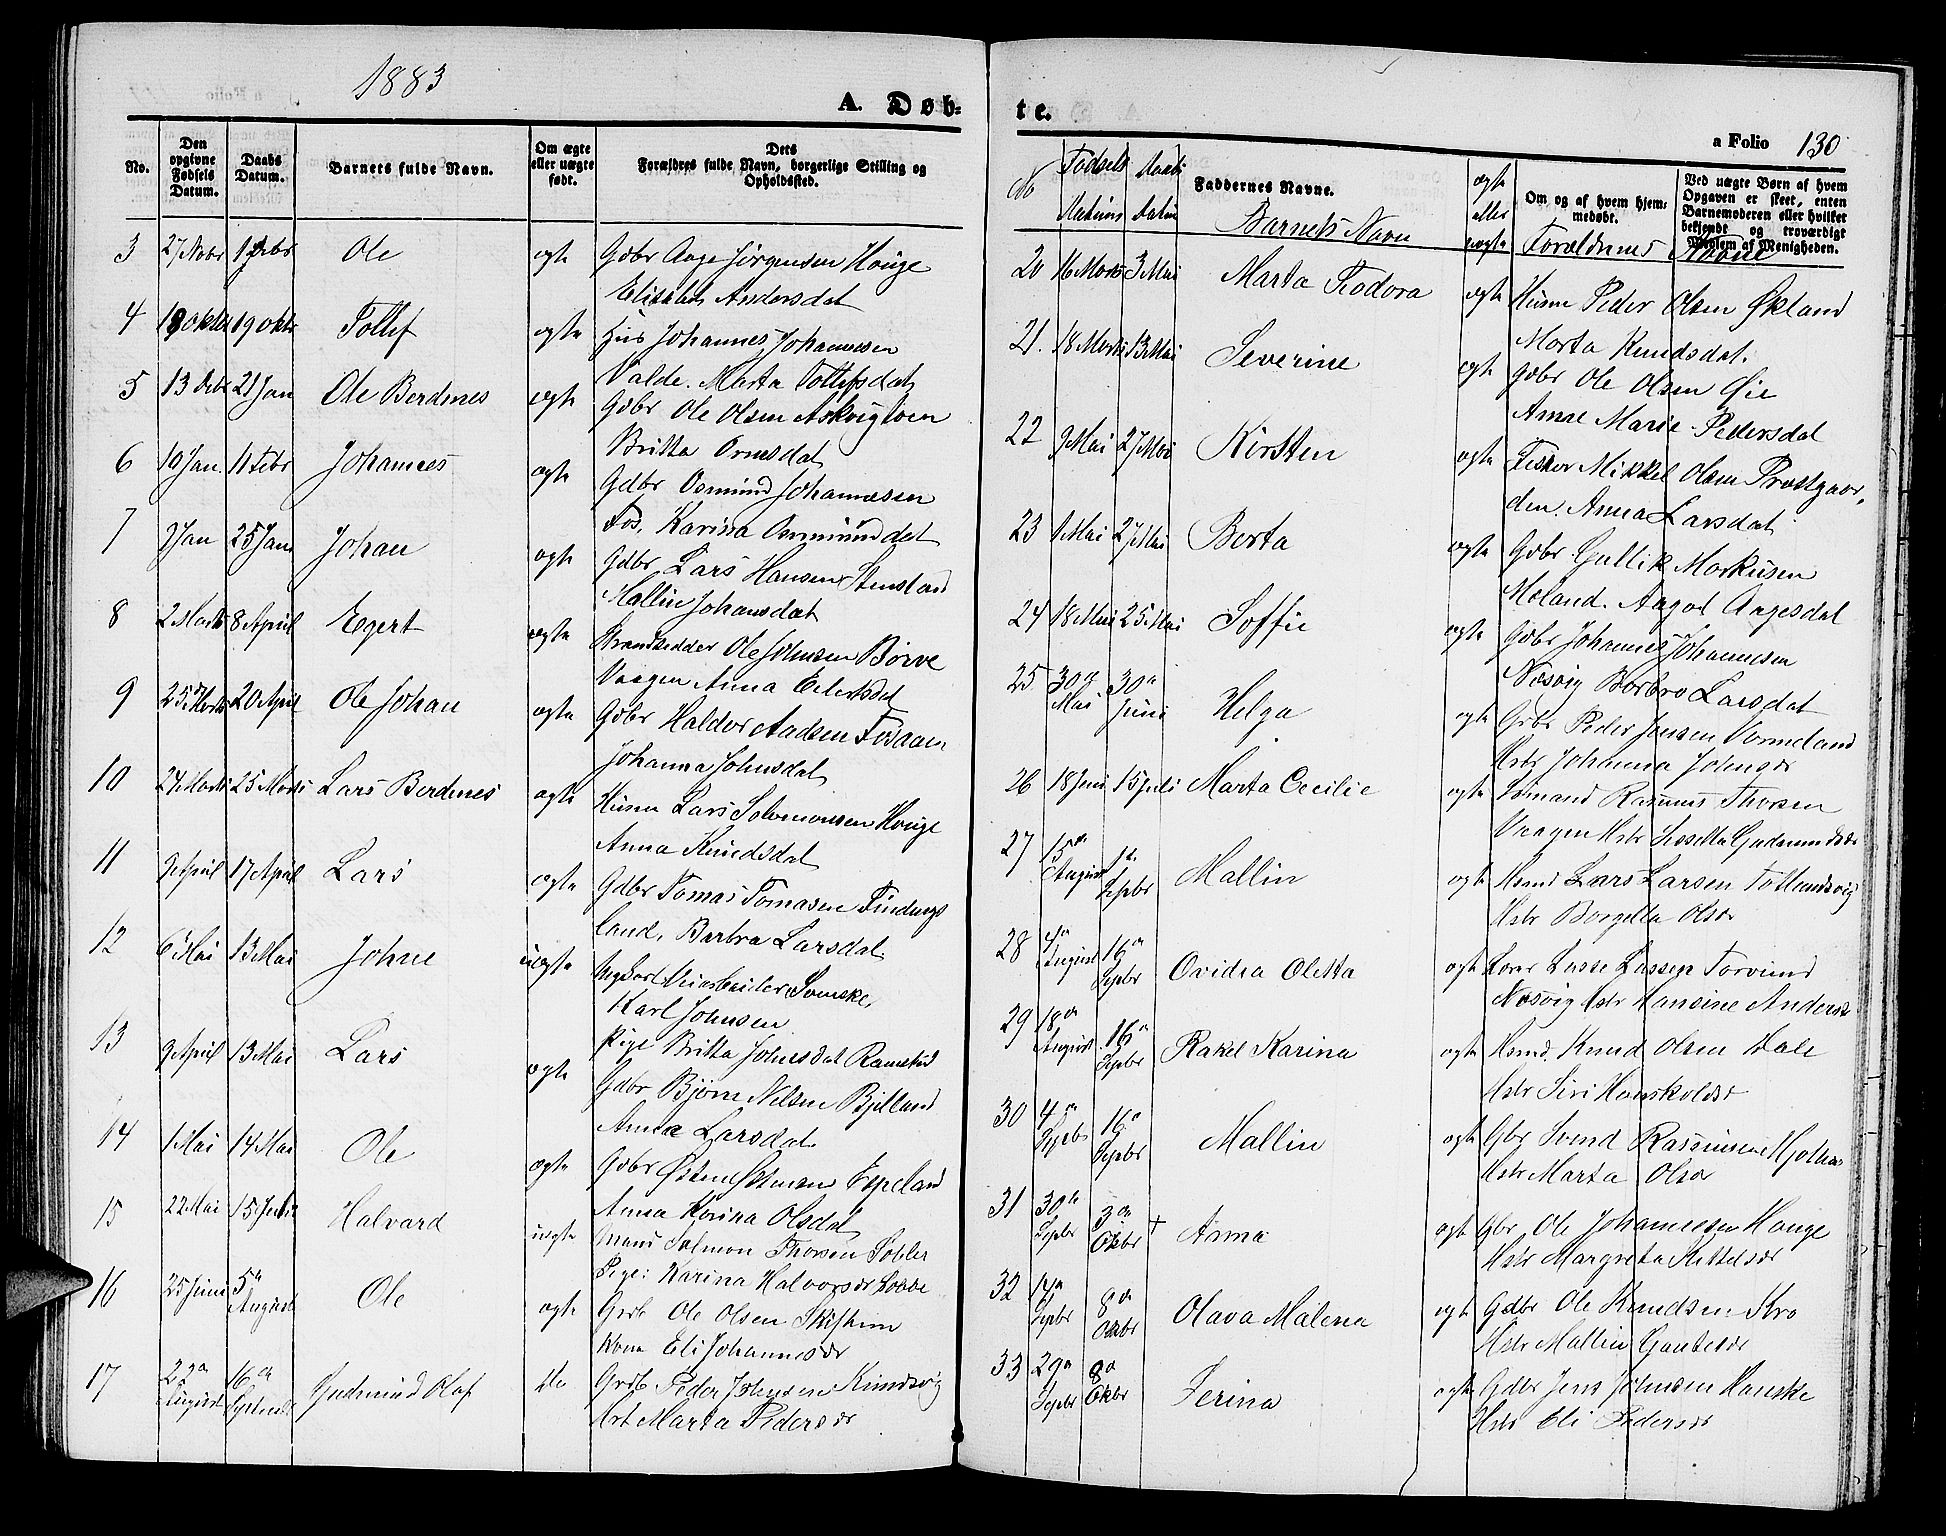 1883
A. Døb-
No.
Den opgivne Fødsels Datum.
Daabs Datum.
Barnets fulde Navn.
Om ægte eller uægte født.
Dets Forældres fulde Navn, borgerlige Stilling og Opholdssted.
3 27 Novbr Ole ægte Gdbr Aage Jørgensen Houge
Elisabet Andersdat
4 19 oktr Tollef ægte Hus Johannes Johannesen
Valde. Marta Tollefsdat
5 13 Debr 21 Jan Ole Berdines ægte Gdbr Ole Olsen Askvigloen
Britta Ormsdat
6 10 Jan. 11 Febr Johannes ægte Gdbr Osmund Johannesen
Fos. Karina Osmundsdat
7 Jan 25 Jan Johan ægte Gdbr Lars Hansen Stensland
Mallin Johansdat
8 2 Marts 8 April Egert ægte Strandsidder Ole Johnsen Börve
Vaagen Anna Eilertsdat
9 25 Marts 20 April Ole Johan ægte Gdbr Haldor Aadsen Fosaaen
Johanna Johnsdat
10 24 Marts 25 Marts Lars Berdines ægte Husm Lars Salomonsen Houge
Anna Knudsdat
11 9 April 17 April Lars ægte Gdbr Tomas Tomasen Findings
land, Barbra Larsdat
12 6 Mai 13 Mai Johne uægte Svenske,
Karl Johnsen
Pige Britta Johnsdat Ramstad
13 9 April 13 Mai Lars ægte Gdbr Bjørn Nilsen Bjelland
Anna Larsdat
14 1 Mai 14 Mai Ole ægte Gdbr Østen Østensen Espeland
Anna Karina Olsdat
15 22 Mai 15 Juli Halvard uægte Salmon Thorsen
Pige: Karina Halvorsdr
16 25 Juni 5te August Ole ægte Grdb Ole Olsen Skiftun
Kone Eli Johannesdr
17 22de August 16de Gudmund Olaf do Grdb Peder Johnsen Kindsvig
Hst Marta Pedersdr
te.
a Folio 130
No Fødsels Datum Daabs Datum
Faddernes Navne.
Barnets Navn
ægte eller uægte
Om og af hvem hjemmedøbt.
Forældrenes Navne
Ved uægte Børn af hvem Opgaven er skeet, enten Barnemoderen eller hvilket bekjendt og troværdigt Medlem af Menigheden.
20 16 Marts 3 Mai Marta Todora ægte Husm Peder Olsen Økland
Marta Knudsdat.
21. 18 Marts 13 Mai Severine ægte Gdbr Ole Olsen Øie
Anne Marie Pedersdat
22 9 Mai 27 Mai Kirsten ægte Fisker Mikkel Olsen Præstgaar-
den. Anna Larsdat
23 1 Mai 27 Mai Berta ægte Gdbr Gullik Markusen
Meland. Aagot Aagesdat
24 18 Mai 25 Mai Soffie ægte Gdbr Johannes Johannesen
Næsvig Barbro Larsdat
25 30te Mai 30te Juni Helga ægte Grbr Peder Jonsen Vormeland
Hstr Johanna Johnsdr
26 18 Juni 15 Juli Marta Cecilie ægte Rasmus Thorsen
Vaagen Hstr Gudmundsdr
27 15de August Sepbr Mallin ægte Hsmd Lars Larsen Totlandsvig
Hstr Borgella Olsdr
28 August 16de Sepbr Ovidia Oletta ægte Lærer Lasse Lassen Torsund
Næsvig Hstr Hansine Andersdr
29 18de August 16de Sepbr Rakel Karina ægte Hsmd. Knud Olsen Hale
Hstr Siri Hauskoldsdr
30 4de Sepbr 16de Sepbr Mallin ægt Gbr Svend Rasmusen
Hstr Marta Olsdr
31 30te Sepbr 3de Okbr + Anna ægt Gbr Ole Johannesen Houge
Hstr Margreta Kittelsdr
32 Sepbr 8de Okbr Olava Malena ægt Gdbr Ole Knudsen Kro
Hstr Mallin Gautesdr
33 29de Sepbr 8de Okbr Serina ægte Gdbr Jens Johnsen Hauske
Hstr Eli Pedersdr